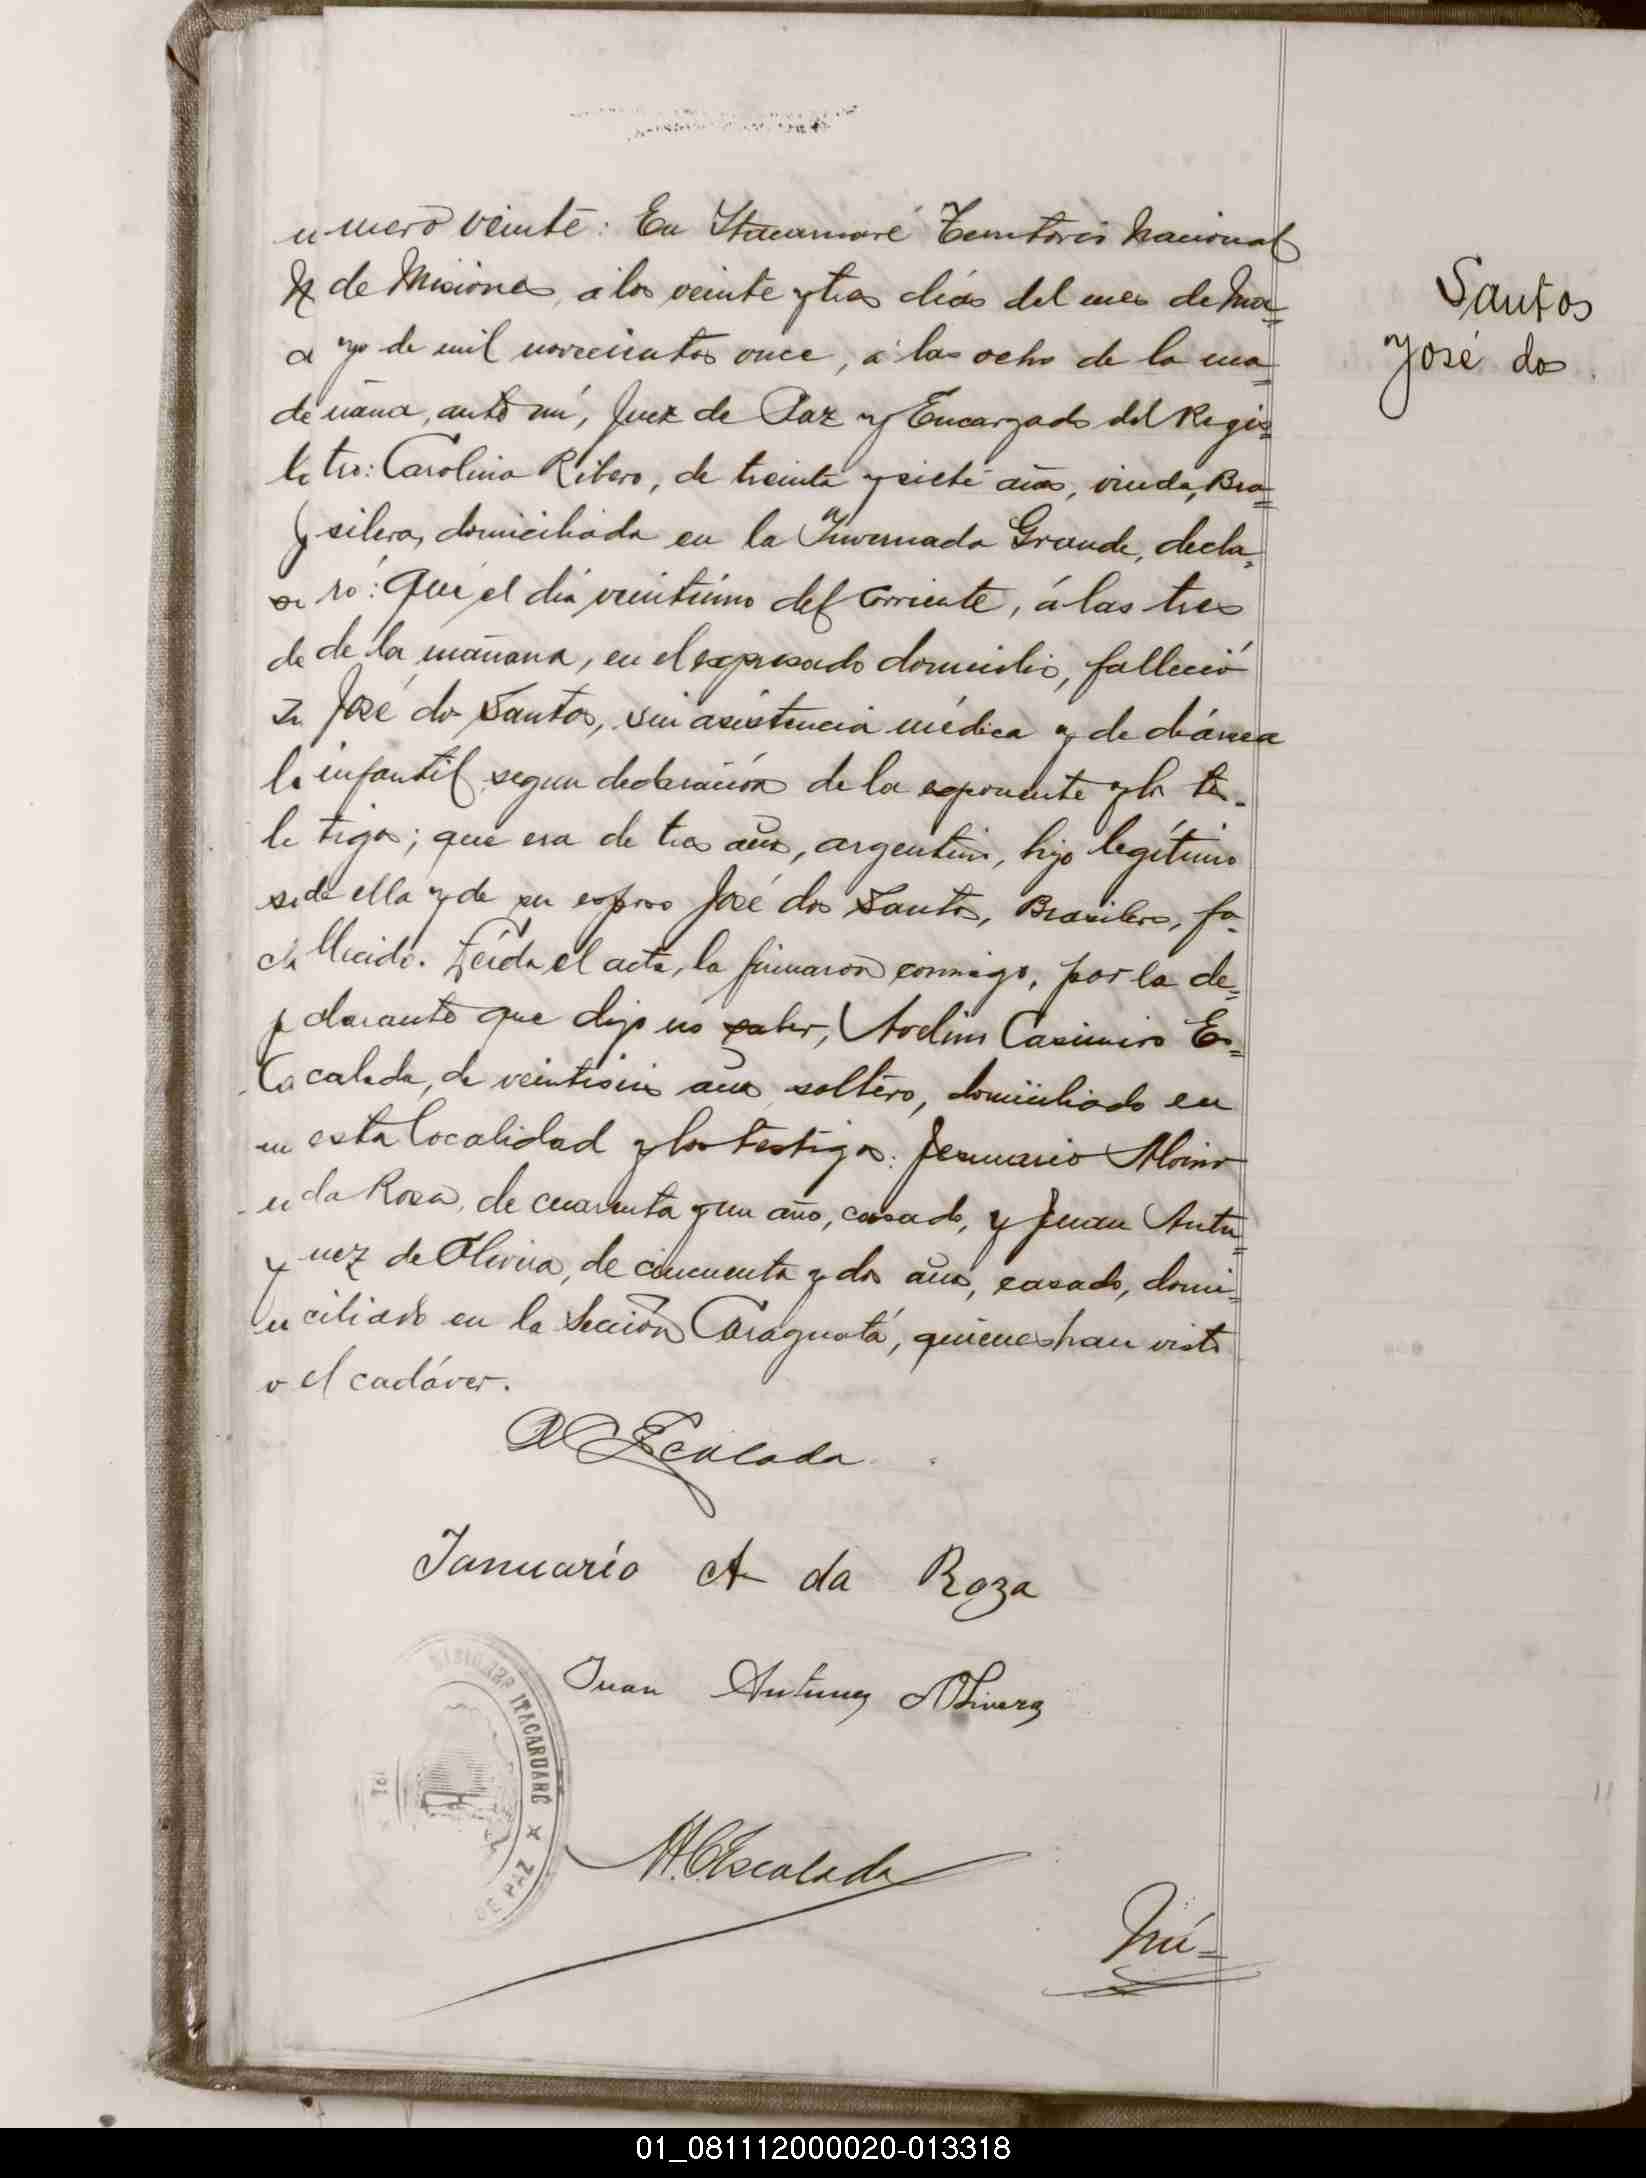 mero veinte: En Itacaruaré Territorio Nacional
de Misiones, á los veinte y tres dias del mes de Ma=
yo de mil novecientos once, á las ocho de la ma=
ñana, ante mí, Juez de Paz y Encargado del Regis=
tro: Carolina Ribero, de treinta y siete años, viuda, Bra=
silera, domiciliada en la Invernada Grande, decla=
ró: Que el dia veintiuno del corriente, á las tres
de la mañana, en el expresado domicilio, falleció
José dos Santos, sin asistencia médica y de diárrea
infantil segun declaración de la exponente y los tes-
tigos; que era de tres años, argentino, hijo legítimo
de ella y de su esposo José dos Santos, Brasilero, fa-
llecido. Leída el acta, la firmaron conmigo, por la de=
clarante que dijo no saber, Avelino Casimiro Es=
calada, de veintiseis años soltero, domiciliado en
esta localidad y los testigos: Jenuario
da Rosa, de cuarenta y un año, casado, y Juan Antu=
nez de Olivera, de cincuenta y dos años, casado, domi=
ciliado en la Sección Caraguatá, quienes han visto
el cadáver.
Santos
José dos
A C Escalada
Januario A da Roza
Juan Antunez Olivera
ITACARUARÉ
DE PAZ
M. C. Escalada
Nú=
01_081112000020-013318